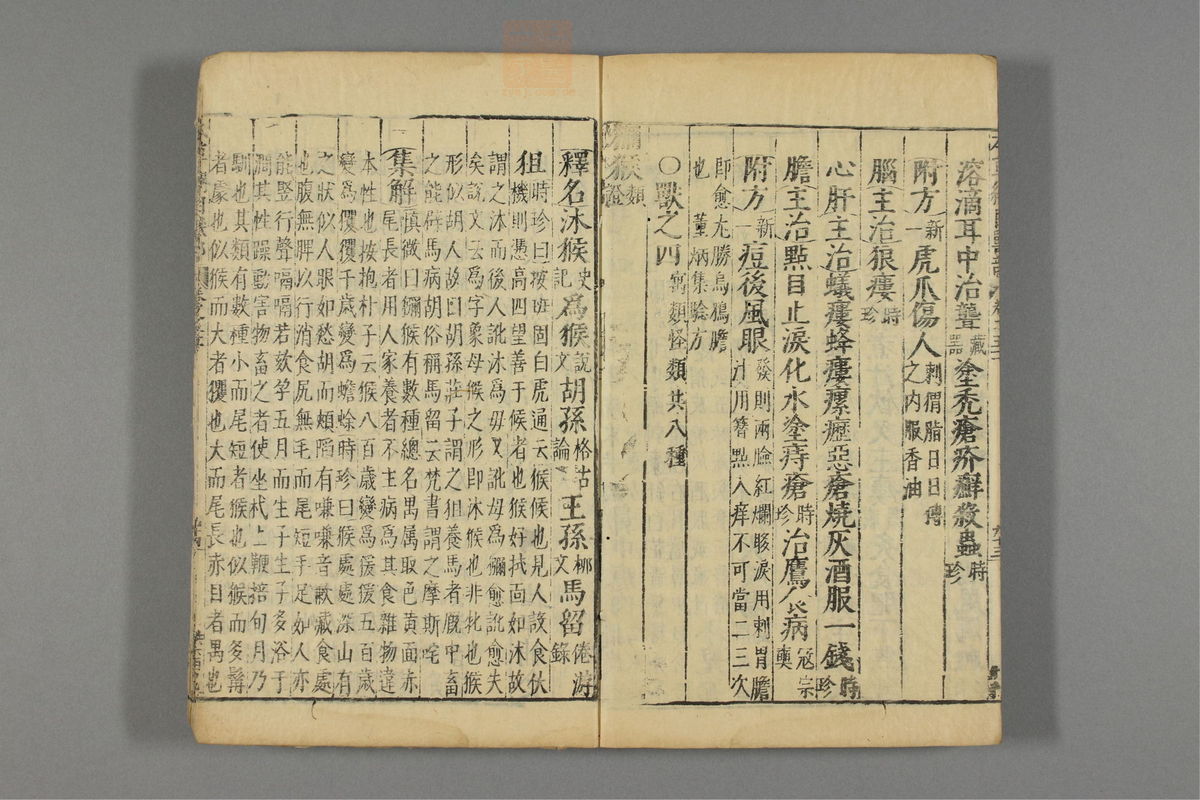 溶滴耳中治聾藏器塗禿瘡疥癬殺蟲時珍
附方新一虎爪傷人刺猬脂日日傅之內服香油
腦主治狼瘻時珍
心肝主治蟻瘻蜂瘻瘰癧惡瘡燒灰酒服一錢時珍
膽主治點目止淚化水塗痔瘡時珍治鷹食病寇宗奭
附方新一痘後風眼發則兩瞼紅爛眵淚用刺胃膽汁用簪點入痒不可當二三次
即愈尤勝烏鴉膽也董炳集驗方
○獸之四寓類怪類共八種
獼猴證類
釋名沐猴史記為猴說文胡孫格古論王孫柳文馬留倦游錄
狙時珍曰按班固白虎通云猴候也見人設食伏機則憑高四望善于候者也猴好拭面如沐故
謂之沐而後人訛沐為母又訛母為獼愈訛愈失矣說文云為字象母猴之形即沐猴也非牝也猴
形似胡人故曰胡孫莊子謂之狙養馬者厩中畜之能辟馬病胡俗稱馬留云梵書謂之摩斯咤
集解慎微曰獼猴有數種總名禺属取色黃面赤尾長者用人家養者不主病為其食雜物違
本性也按抱朴子云猴八百歲變為猨猨五百歲變為玃玃千歲變為蟾蜍時珍曰猴處處深山有
之狀似人眼如愁胡而頰陷有嗛嗛音歉藏食處也腹無脾以行消食尻無毛而尾短手足如人亦
能竪行聲嗝嗝若欬孕五月而生子生子多浴于澗其性躁動害物畜之者使坐杙上鞭掊旬月乃
馴也其類有數種小而尾短者猴也似猴而多髯者豦也似猴而大者玃也大而尾長赤目者禺也